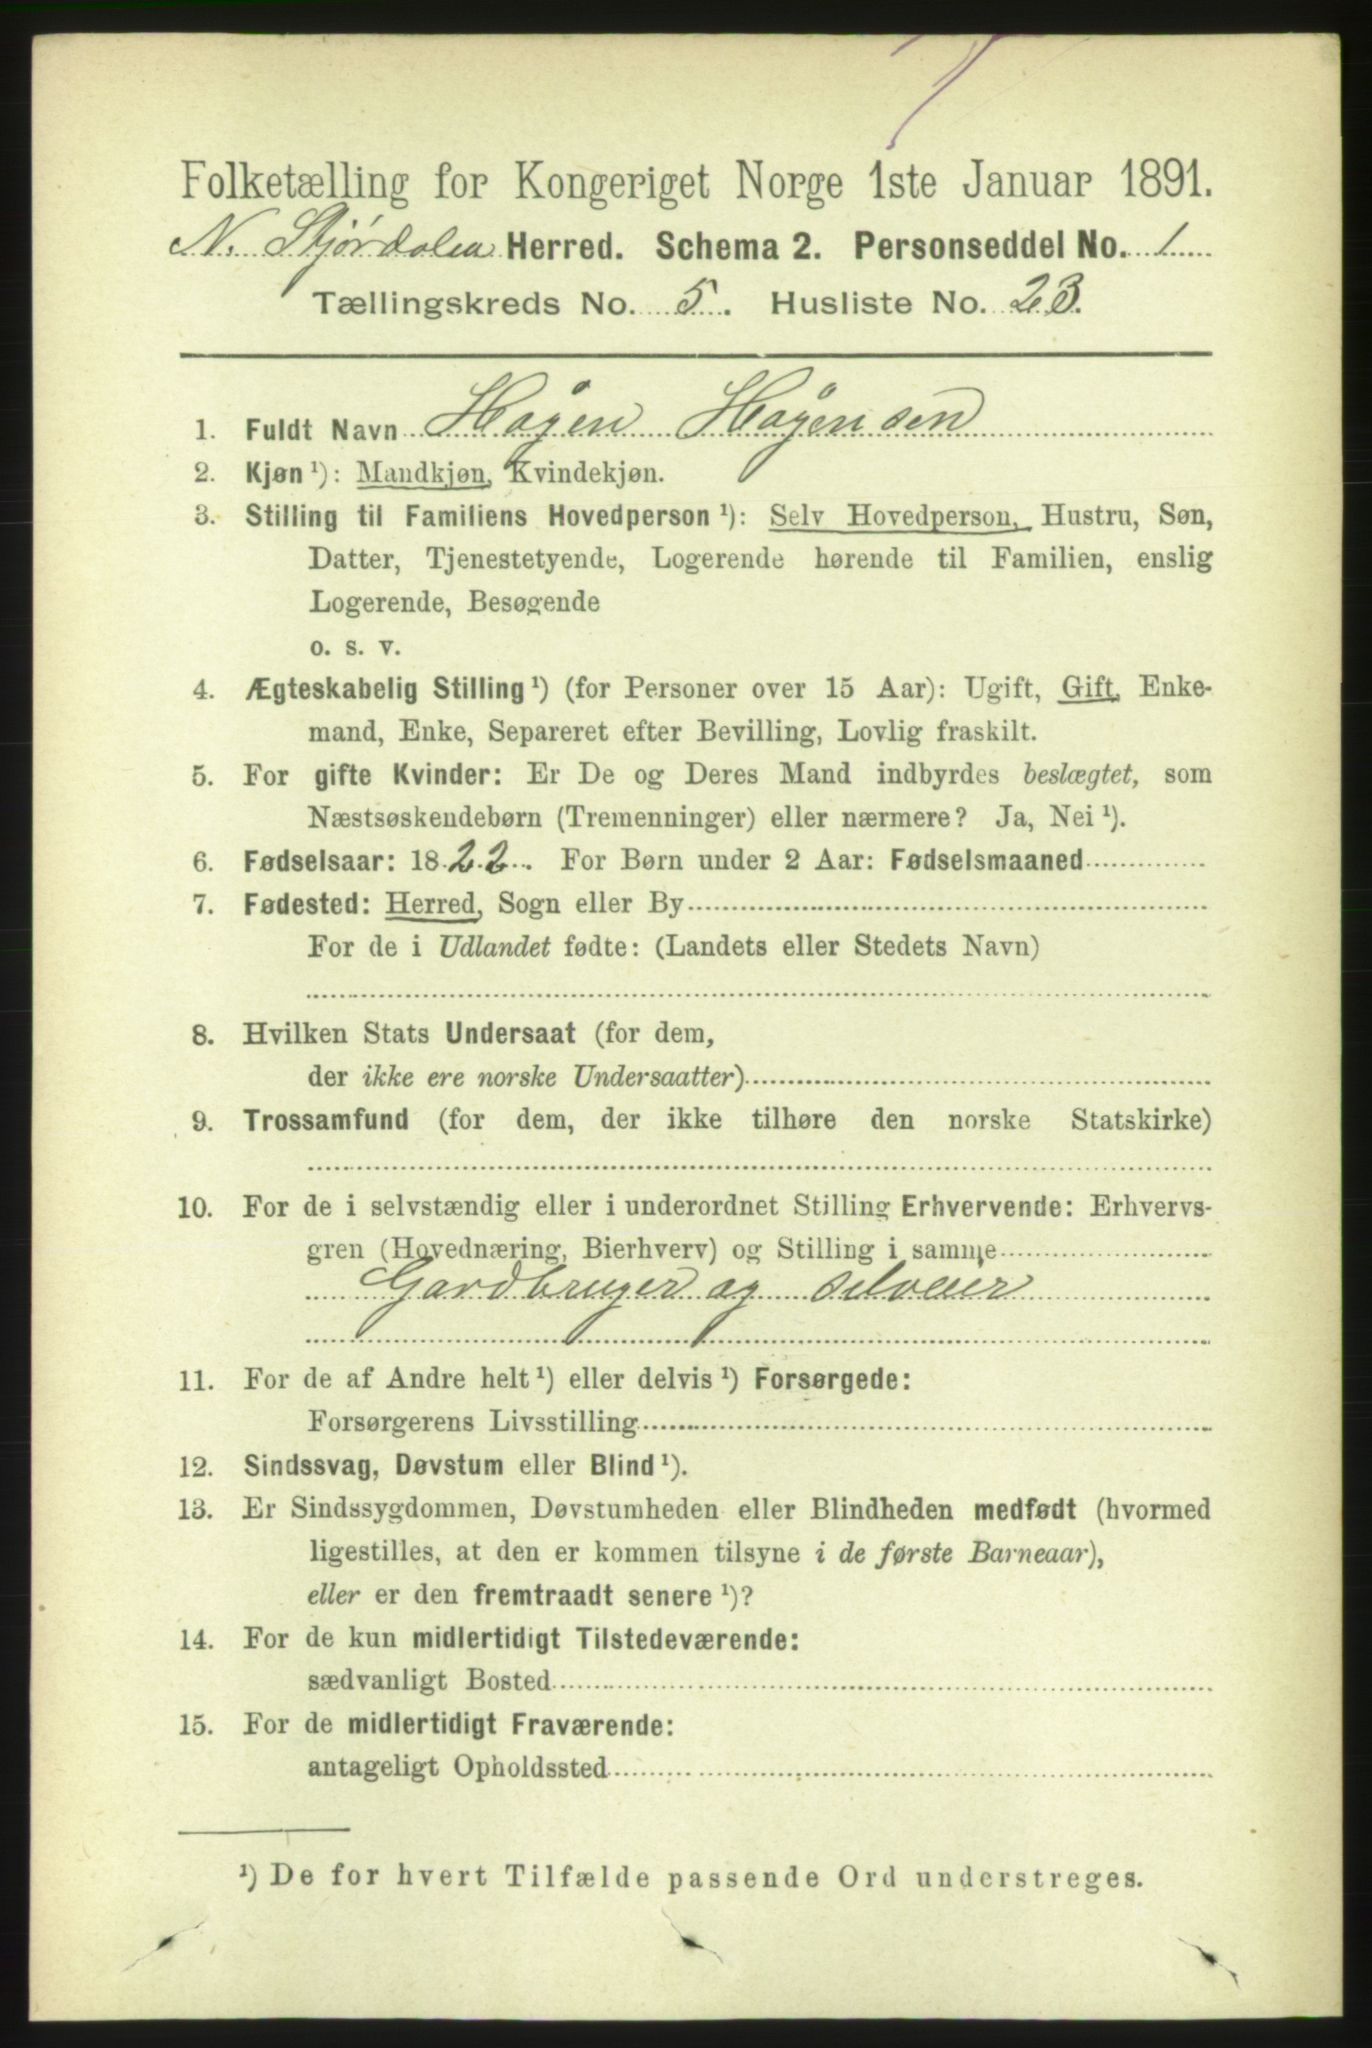 Folketælling for Kongeriget Norge 1ste Januar 1891.
N. Stjørdalen Herred. Schema 2. Personseddel No. 1
Tællingskreds No. 5. Husliste No. 23.
1. Fuldt Navn Hågen Hågensen
2. Kjøn¹): Mandkjøn, Kvindekjøn.
3. Stilling til Familiens Hovedperson¹): Selv Hovedperson, Hustru, Søn,
Datter, Tjenestetyende, Logerende hørende til Familien, enslig
Logerende, Besøgende
o. s. v.
4. Ægteskabelig Stilling¹) (for Personer over 15 Aar): Ugift, Gift, Enke-
mand, Enke, Separeret efter Bevilling, Lovlig fraskilt.
5. For gifte Kvinder: Er De og Deres Mand indbyrdes beslægtet, som
Næstsøskendebørn (Tremenninger) eller nærmere? Ja, Nei¹).
6. Fødselsaar: 1822. For Børn under 2 Aar: Fødselsmaaned
7. Fødested: Herred, Sogn eller By
For de i Udlandet fødte: (Landets eller Stedets Navn)
8. Hvilken Stats Undersaat (for dem,
der ikke ere norske Undersaatter)
9. Trossamfund (for dem, der ikke tilhøre den norske Statskirke)
10. For de i selvstændig eller i underordnet Stilling Erhvervende: Erhvervs-
gren (Hovednæring, Bierhverv) og Stilling i samme
Gardbruger og selveier
11. For de af Andre helt¹) eller delvis¹) Forsørgede:
Forsørgerens Livsstilling
12. Sindssvag, Døvstum eller Blind¹).
13. Er Sindssygdommen, Døvstumheden eller Blindheden medfødt (hvormed
ligestilles, at den er kommen tilsyne i de første Barneaar),
eller er den fremtraadt senere¹)?
14. For de kun midlertidigt Tilstedeværende:
sædvanligt Bosted
15. For de midlertidigt Fraværende:
antageligt Opholdssted
¹) De for hvert Tilfælde passende Ord understreges.